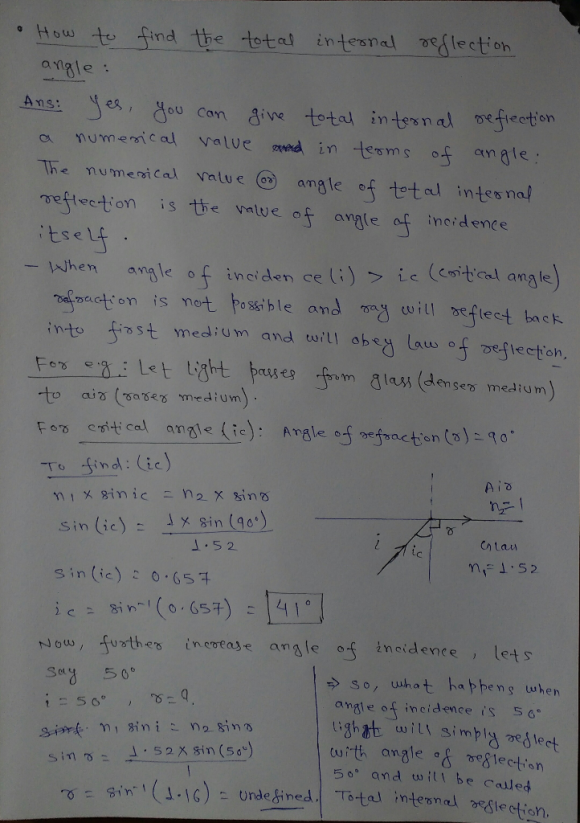 • How to find the total internal reflection
angle :
Ans: Yes, you can give total internal reflection
a numerical value in terms of angle:
The numerical value (or) angle of total internal
reflection is the value of angle of incidence
itself .
- When angle of incidence (i) > ic (critical angle)
refraction is not possible and ray will reflect back
into first medium and will obey law of reflection.
For e.g : Let light passes from glass (denser medium)
to air (rarer medium).
For critical angle (ic): Angle of refraction (r) = 90°
To find: (ic)
n1 x sin ic = n2 x sin r
sin (ic) = 1 x sin (90°)
1.52
sin (ic) = 0.657
ic = sin⁻¹ (0.657) = 41°
Air
n2=1
r
i
ic
Glass
n1=1.52
Now, further increase angle of incidence, lets
say 50°
i = 50° , r = ?
n1 sin i = n2 sin r
sin r = 1.52 x sin (50°)
1
r = sin⁻¹ (1.16) = undefined.
⇒ so, what happens when
angle of incidence is 50°
light will simply reflect
with angle of reflection
50° and will be called
Total internal reflection.